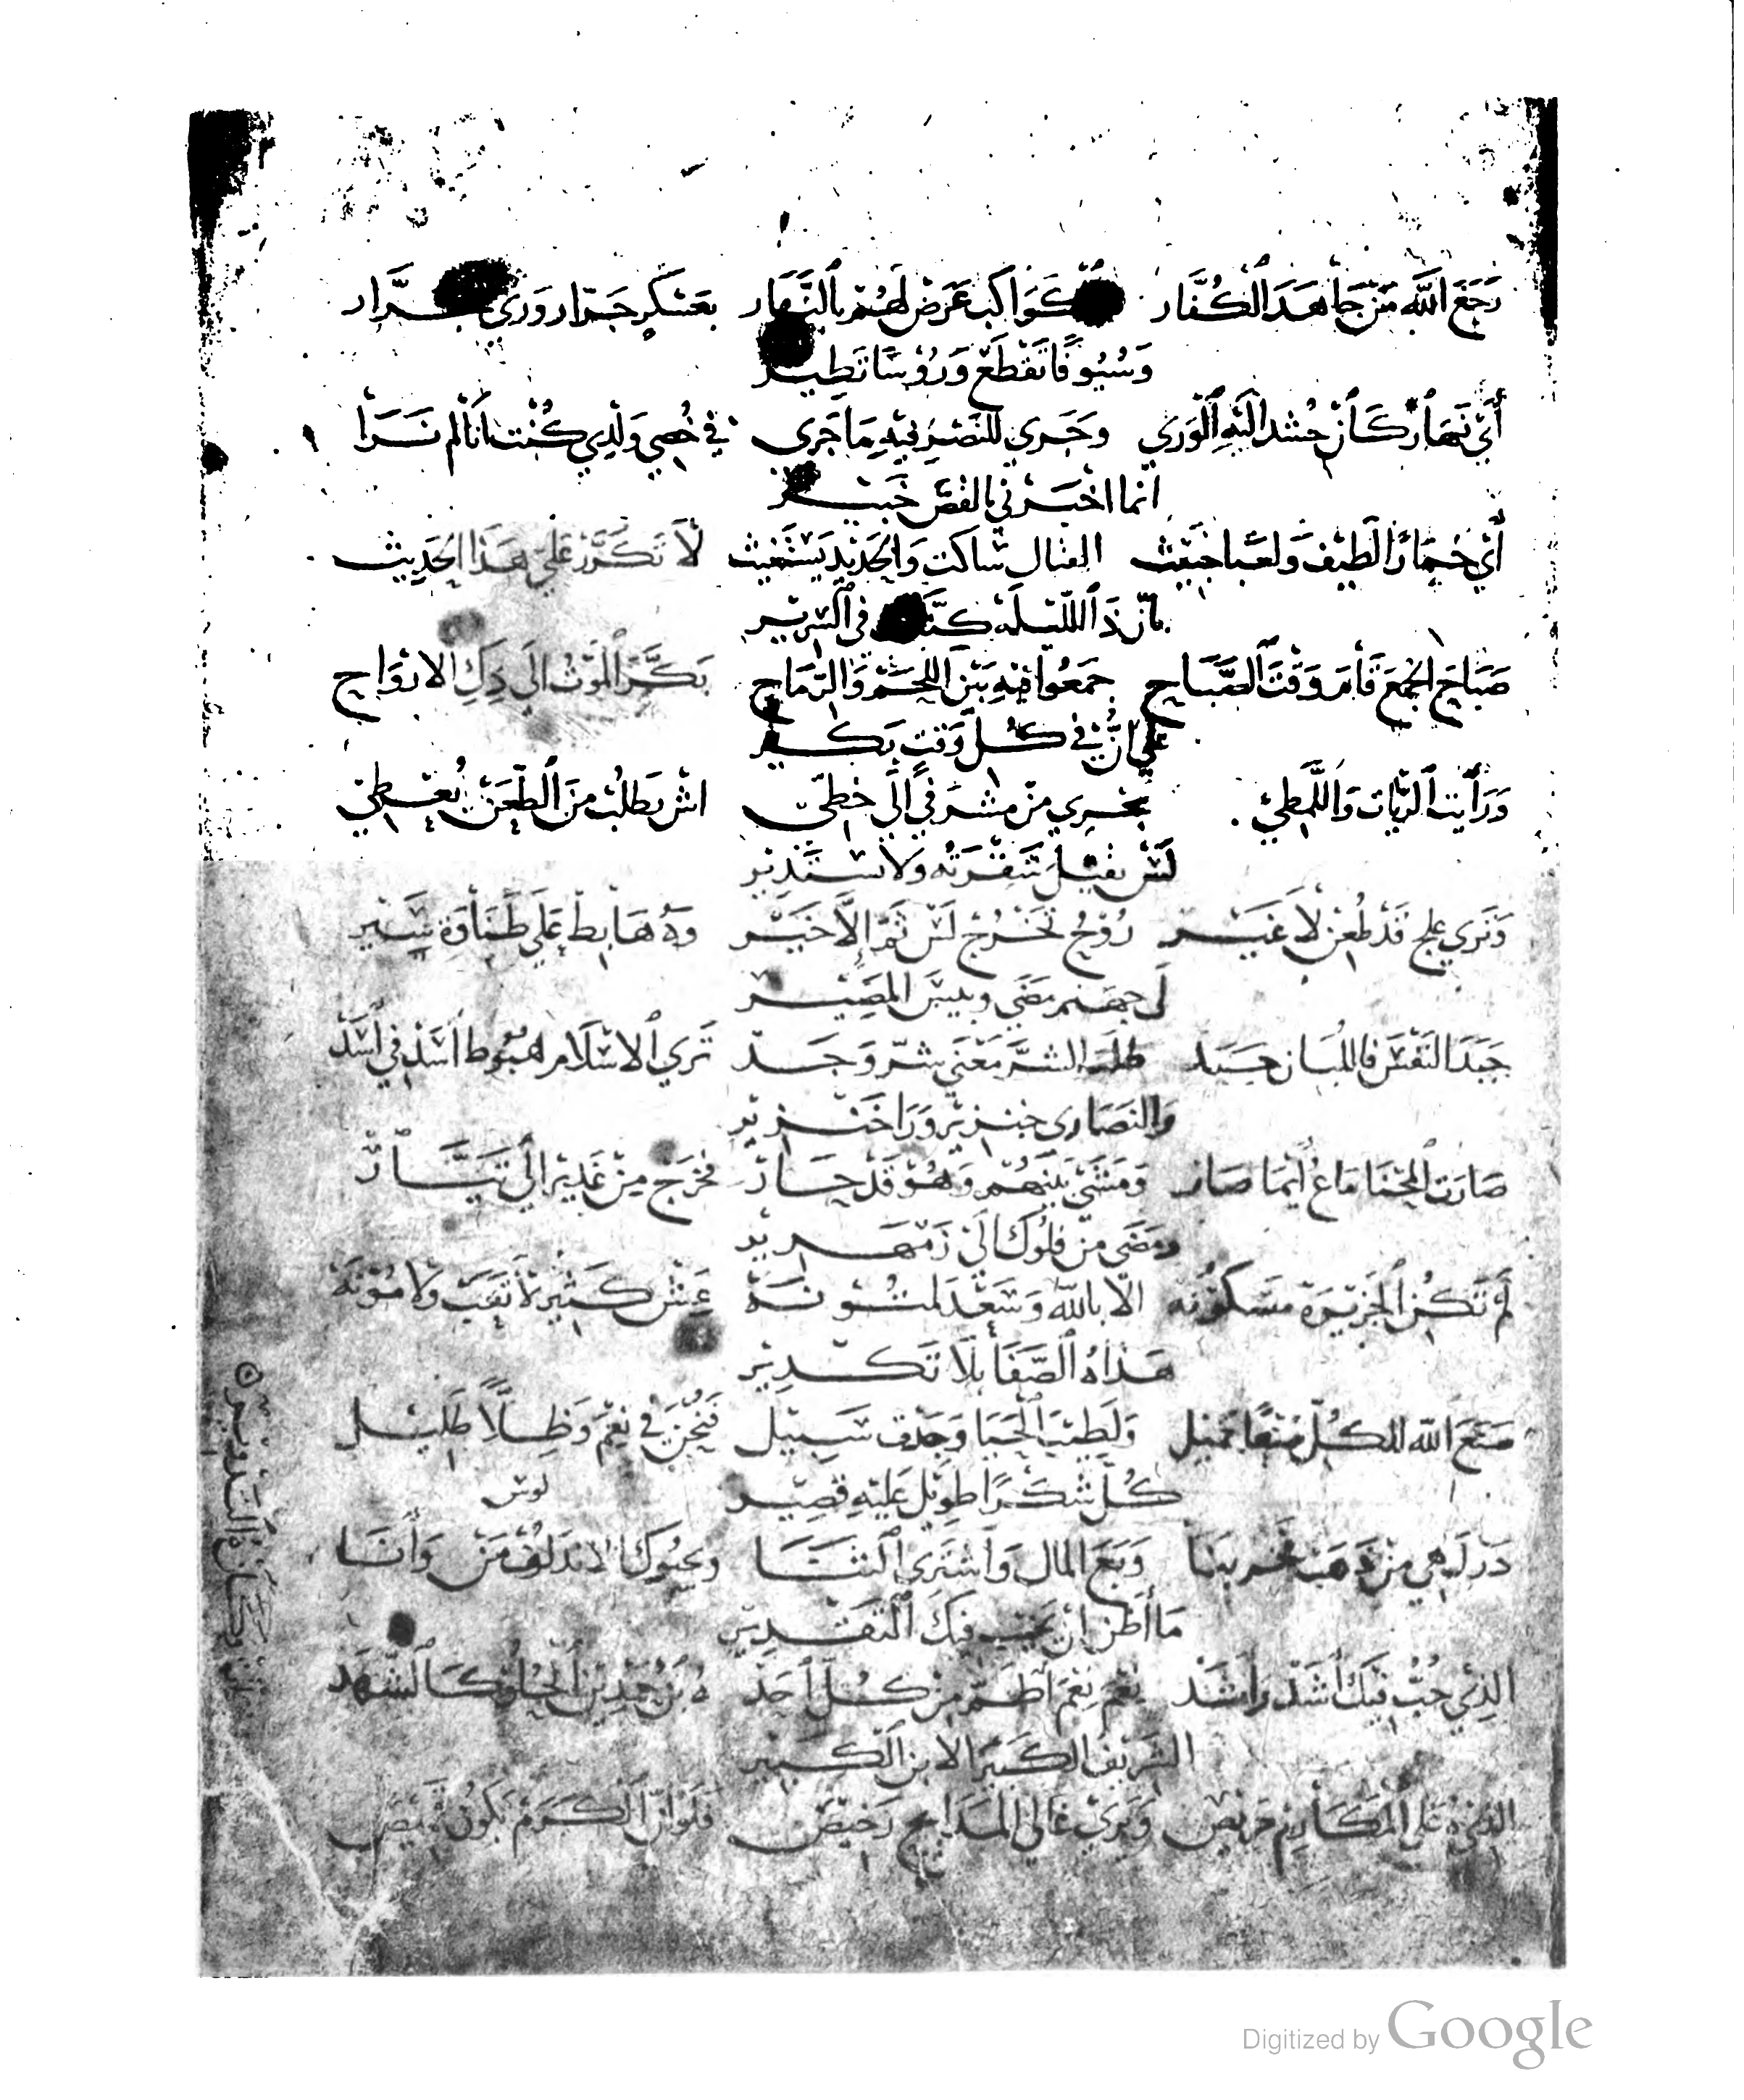 رَجَعَ اللّه مَنْ جَاهَدَ الكُفَّار كَوَاكب عَرَضْ لَهُمْ بالنَّهَار بعَسْكَرٍ جَرّار وَرَى جَرَّار
وَسُيُوفًا تَقْطَعْ وَرُؤُسًا تَطِير
أيْ نَهَارْ كَانْ حُشد الَيْهِ الوَرَى وَجَرى للنَصْرِ فيهِ مَا جَرى في خُصي وَلَدِي كُنْت أنَا لَم نَرَا
انّما اخْبَرْنِي بالقصّ خَبير
أيْ حُمَارًا لَطِيفْ وَلعبا خَبيثْ القتال سَاكت وَالحَدِيد يَسْتَغيثْ لَا تَكَرَّرْ عَلَيّ هَذَا الحَدِيثْ
بانّ ذَا اللَّيْلَه كنَّا فى السَّرِير
صَبَاحَ الجُمعَ قَامَ وَقْتَ الصَّبَاح جَمَعُوا فيهِ بَيْنَ اللَّحْمْ وَالرِّمَاحْ بَكَّرَ المَوْتْ الَى ذِكِ الارْوَاحْ
عَلَى انُّ في كُلّ وَقت يَكير
وَرَأيت الرَّيَات وَاللَّمطِي يَجْرِي منْ مشرَفي الَى خطِيّ اشْ يَطلُبْ مِنَ الطَّعَنْ يُعْطِي
لَسْ يقيل تنقرَتُه وَلا يسْتَدِير
وَنَرى علج قَدْ طُعنْ لَا غَيْر رُوْحُ تَخْرُج لَسْ ثَمّ إلَّا خَيْر وَهُ هَابِطْ عَلَى طَنَاوَة سَيْر
لَى جهنم مَضَى وبيسَ المَصِيْر
جَيّدَ النَفْسْ فاللبَان جيّد طلَبَ الشرَّ مَعْنَى شرّ وَجَد تَرى الاسْلَام هبُوط أسَدْ في أسَدْ
وَالنَصَارى خنزير وَرَا خَنْزِير
صَارَت المجنا مَاعُ أيْمَا صَار وَمَشَى بَيْنَهُمْ وَهُوْ قَدْ حَارْ فخَرَجْ مِنْ غَدِيرْ الَى تَيَّارْ
وَمَضَى منْ فلُوك الَى زَمْهَرِيرْ
لَمْ تَكُنْ الجَزِيْرَة مَسْكُوْنَه الّا باللّه وَسَعْدَ لمتُونَهْ عَيْش كَثِيْر لَا تَعَبْ وَلا مُوْنَهْ
هَذَاهُ الصَّفَا بلَا تَكْدِيْر
صَنَعَ اللّه للكُلّ صُنعًا جَمِيل وَلطَيْبَ الحَيَا وَجَدْت سَبِيْل فَنَحْنَ في نِعْمْ وَظِلًّا ظَلِيْل
كُلّ شكْرًا طوِيْل عَليْهِ قصِيْر
وَبَعَ المَال وَاشتَرى الثَنَا
مَا أظن انْ فيكَ التَقْدِير
الذِيْ حُبُّ فيْكْ أشَدّ وَاشَدّ نعَمْ نِعْمْ أطَمّ مِنْ كُلّ أحَدْ هُ بَنْ حَمْدِيْن الحلوْ كَالشَّهَد
الشَرِيْف الكَبِيْر الابن الكَبِيْر
الذِيْ هُ عَلى المَكَارِمْ حَرِيْص وَيَرى غَالي المَدَايح رَخيْصْ فَلَوْ انّ الكَرَمْ يَكُونْ قَمِيْص
Digitized by Google